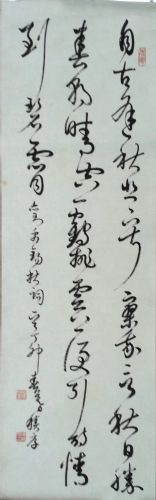 自古逢秋悲寂寥我言秋日勝
春朝晴空一鶴排雲上便引詩情
到碧霄 劉禹錫秋詞